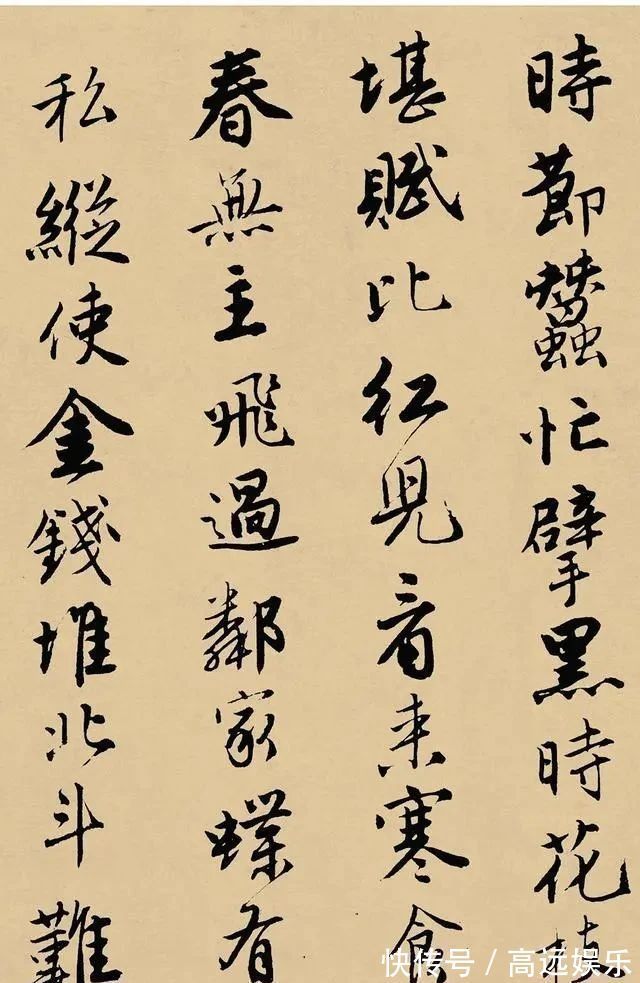 時節蠶忙擘黑時花枝
堪賦比紅兒看來寒食
春無主飛過鄰家蝶有
私縱使金錢堆北斗難
快传号 / 高远娱乐